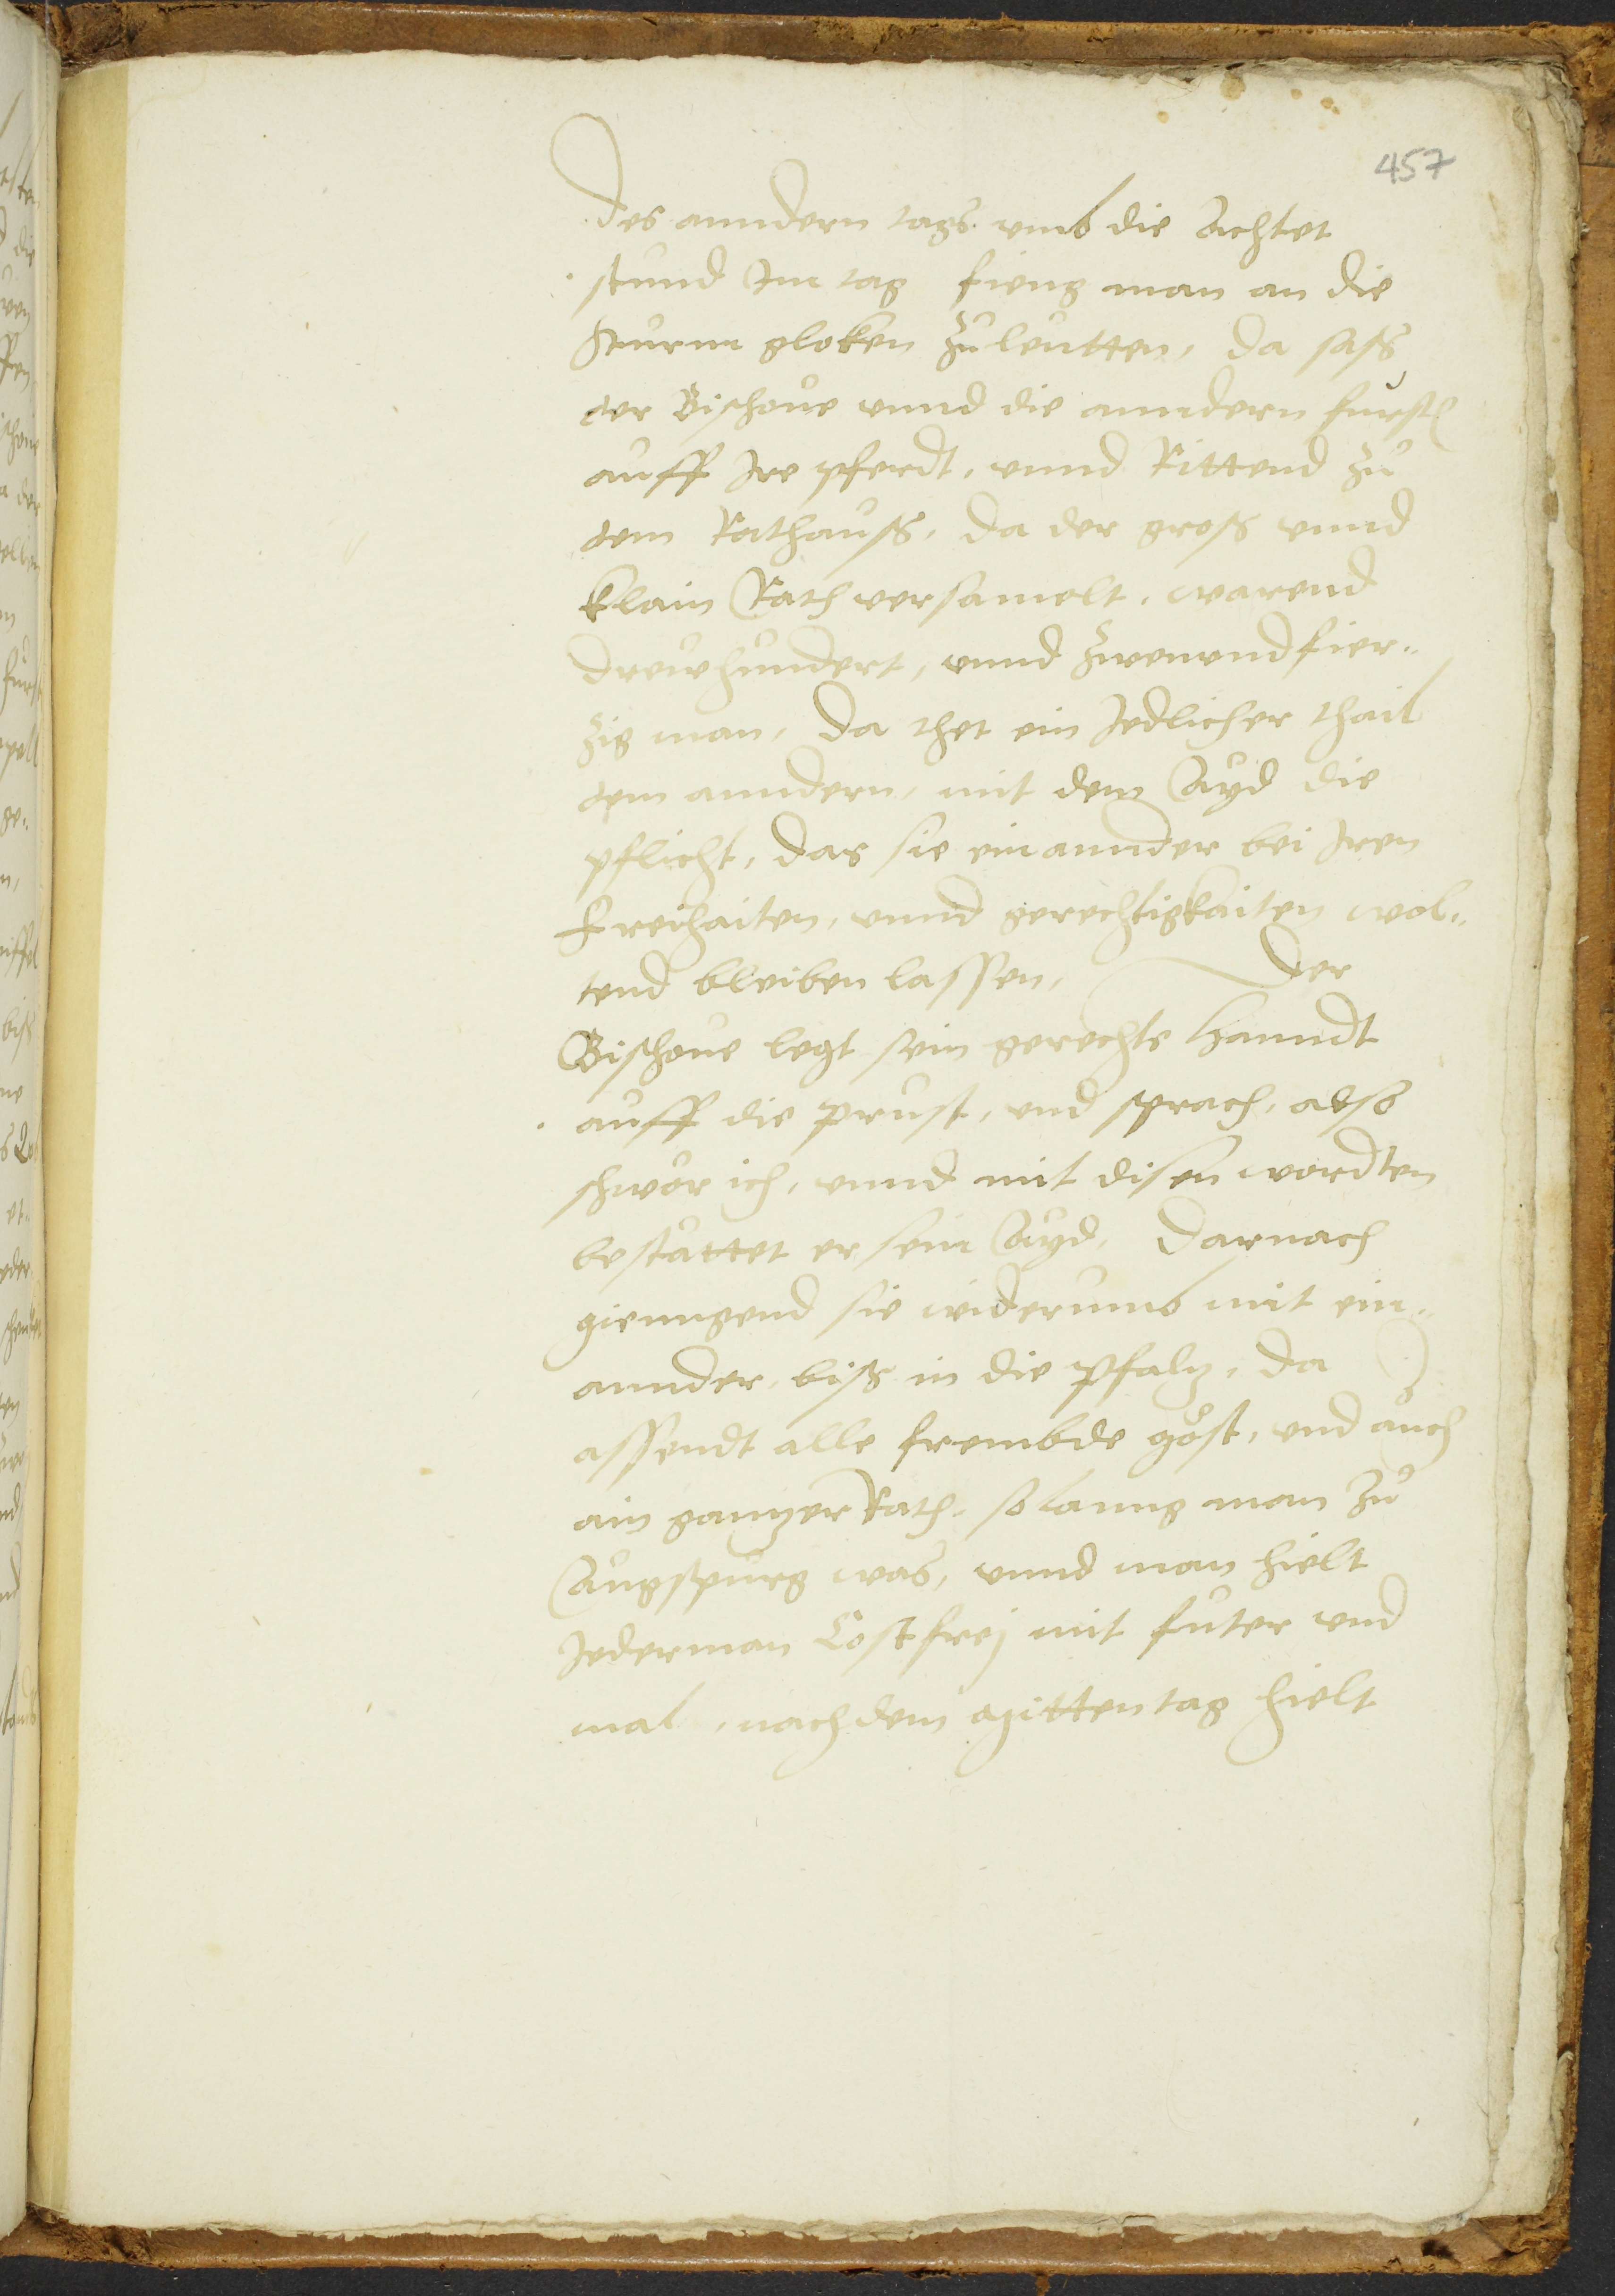 457
Des anndern tags vmb die Achtet
stund Im tag fieng man an die
Sturm gloken Zuleutten, da saß
der Bischoue vnnd die anndern furst
auff Ire pferdt, vnnd Rittend Zu
dem Rathauß, da der groß vnnd
klain Rath versamelt, warend
drewhundert, vnnd Zwenvndfier¬
Zig man, Da thet ein Jedlicher thail
dem anndern, mit dem Ayd die
pflicht, das sie einannder bei Iren
freihaiten, vnnd gerechtigkaiten wol¬
tend bleiben lassen, Der
Bischoue legt sein gerechte Hanndt
auff die prust, vnd sprach, also
schwör ich, vnnd mit disen wordten
bestattet er sein Ayd, Darnach
gienngend sie widerumb mit ein¬
annder, biß in die Pfalz, Da
assendt alle frembde göst, vnd auch
ain ganzer Rath, so lanng man Zu
Augspurg was, vnnd man hielt
Jederman Costfrej mit futer vnd
mal, nach dem Mittentag hielt